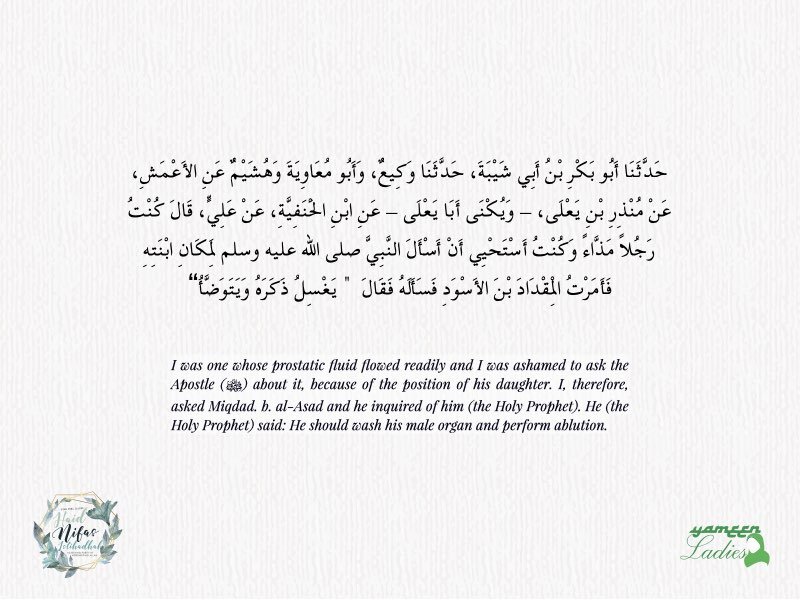 حَدَّثَنَا أَبُو بَكْرِ بْنُ أَبِي شَيْبَةَ، حَدَّثَنَا وَكِيعٌ، وَأَبُو مُعَاوِيَةَ وَهُشَيْمٌ عَنِ الأَعْمَشِ،
عَنْ مُنْذِرِ بْنِ يَعْلَى، – وَيُكْنَى أَبَا يَعْلَى – عَنِ ابْنِ الْحَنَفِيَّةِ، عَنْ عَلِيٍّ، قَالَ كُنْتُ
رَجُلاً مَذَّاءً وَكُنْتُ أَسْتَحْيِي أَنْ أَسْأَلَ النَّبِيَّ صلى الله عليه وسلم لِمَكَانِ ابْنَتِهِ
فَأَمَرْتُ الْمِقْدَادَ بْنَ الأَسْوَدِ فَسَأَلَهُ فَقَالَ " يَغْسِلُ ذَكَرَهُ وَيَتَوَضَّأُ“
I was one whose prostatic fluid flowed readily and I was ashamed to ask the
Apostle (ﷺ) about it, because of the position of his daughter. I, therefore,
asked Miqdad. b. al-Asad and he inquired of him (the Holy Prophet). He (the
Holy Prophet) said: He should wash his male organ and perform ablution.
Haid
Nifas
Istihadhah
yameen
Ladies